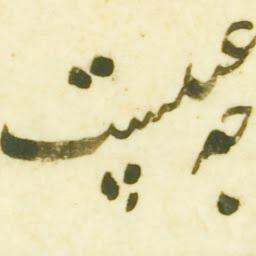 جه عیبست